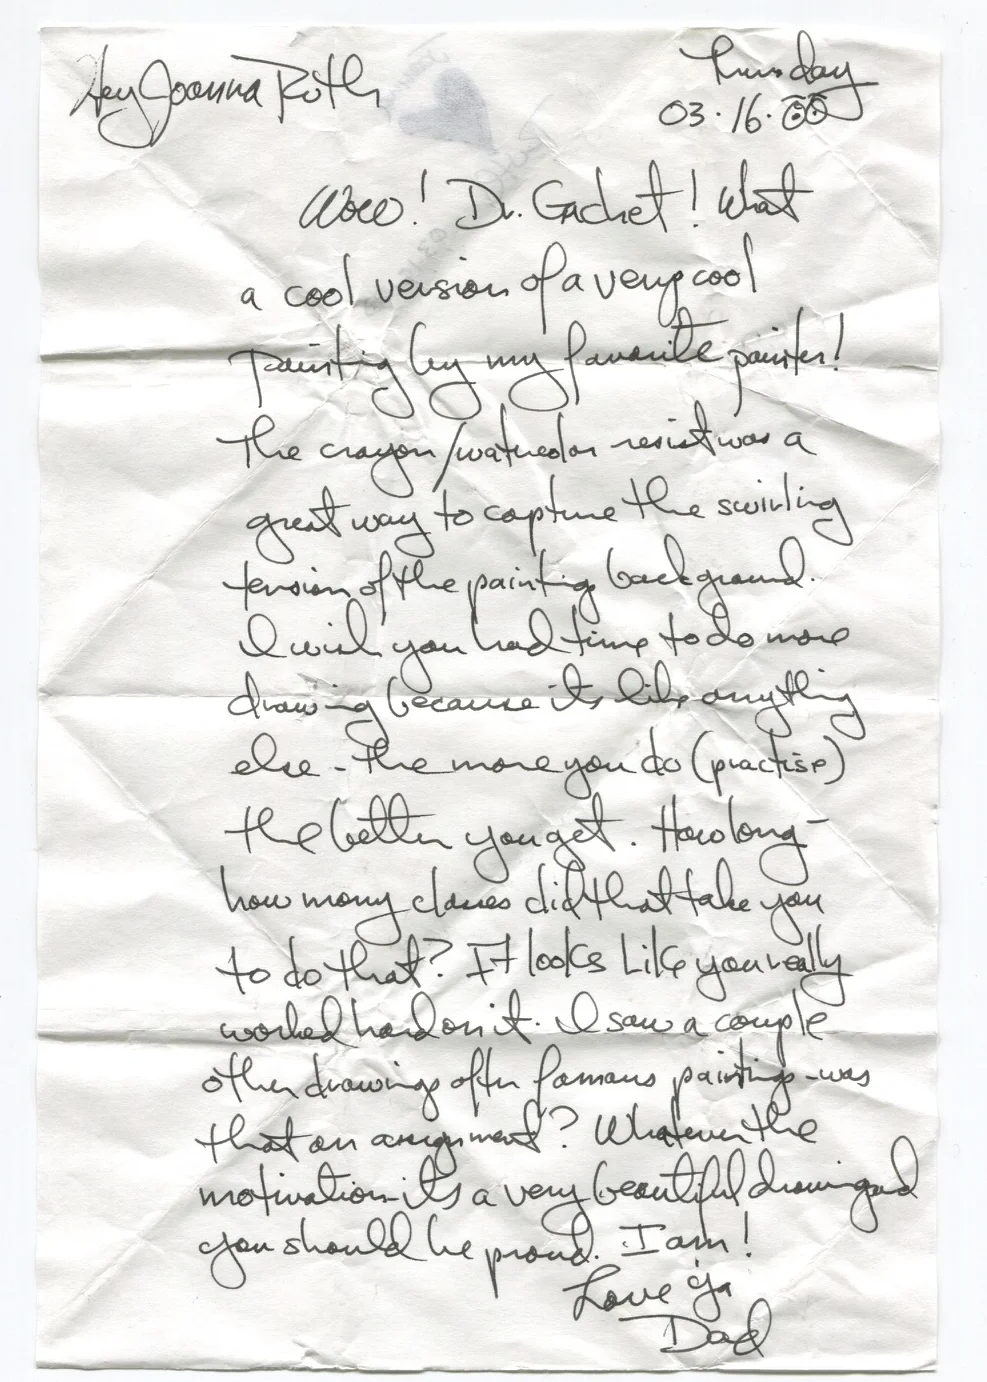 Hey Joanna Ruth
Thursday
03.16.00
Wow! Dr. Gachet! What
a cool version of a very cool
painting by my favorite painter!
The crayon/watercolor resist was a
great way to capture the swirling
tension of the painting background.
I wish you had time to do more
drawing because its like anything
else - the more you do (practise)
the better you get. How long -
how many classes did that take you
to do that? It looks like you really
worked hard on it. I saw a couple
other drawings after famous paintings - was
that an assignment? Whatever the
motivation - it's a very beautiful drawing and
you should be proud. I am!
Love ya
Dad